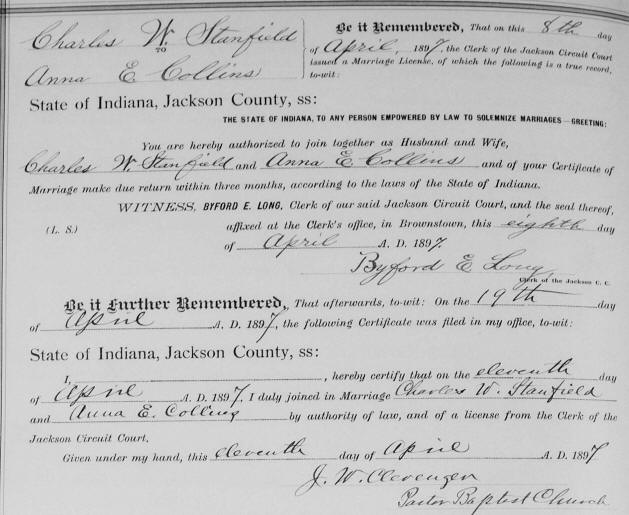 Charles W. Stanfield
TO
Anna E Collins
Be it Remembered, That on this 8th day
of April, 1897, the Clerk of the Jackson Circuit Court
issued a Marriage License, of which the following is a true record,
to-wit:
State of Indiana, Jackson County, ss:
THE STATE OF INDIANA, TO ANY PERSON EMPOWERED BY LAW TO SOLEMNIZE MARRIAGES—GREETING:
You are hereby authorized to join together as Husband and Wife,
Charles W. Stanfield and Anna E. Collins and of your Certificate of
Marriage make due return within three months, according to the laws of the State of Indiana.
WITNESS, BYFORD E. LONG, Clerk of our said Jackson Circuit Court, and the seal thereof,
(L. S.) affixed at the Clerk's office, in Brownstown, this eighth day
of April A. D. 1897.
Byford E Long,
Clerk of the Jackson C. C.
Be it Further Remembered, That afterwards, to-wit: On the 19th day
of April A. D. 1897, the following Certificate was filed in my office, to-wit:
State of Indiana, Jackson County, ss:
I, , hereby certify that on the eleventh day
of April A. D. 1897, I duly joined in Marriage Charles W. Stanfield
and Anna E. Collins by authority of law, and of a license from the Clerk of the
Jackson Circuit Court.
Given under my hand, this eleventh day of April A. D. 1897
J. W. Clevenger
Pastor Baptist Church